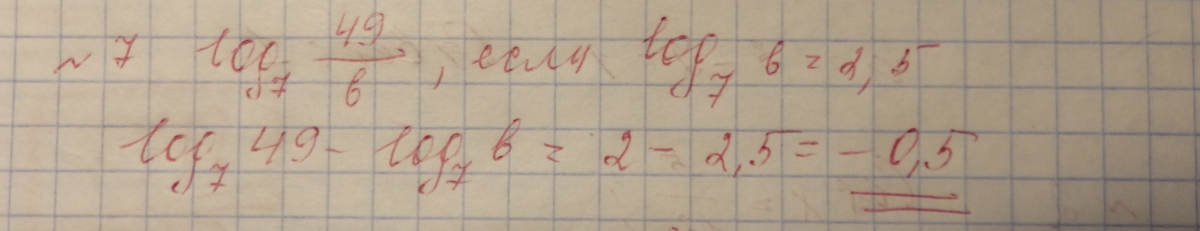 №7 log₇ 49/b, если log₇ b = 2,5
log₇ 49 - log₇ b = 2 - 2,5 = -0,5